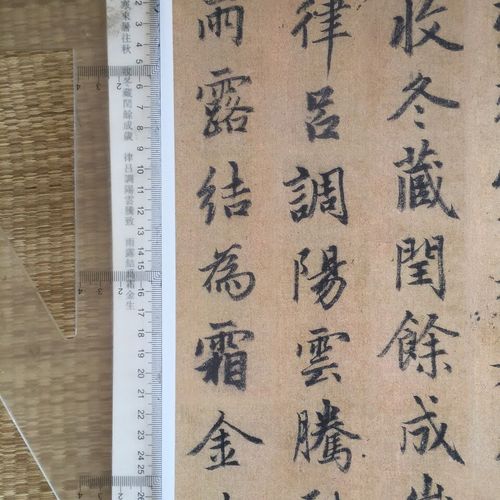 收冬藏閏餘成
律呂調陽雲騰
雨露結為霜金
寒來暑往秋 收冬藏閏餘成歲 律呂調陽雲騰致 雨露結為霜金生
2 3 4 5 6 7 8 9 10 11 12 13 14 15 16 17 18 19 20 21 22 23 24 25 26
4 2
4 2
4 2